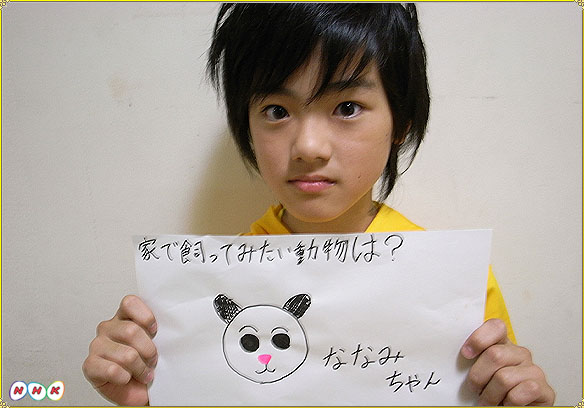 家で飼ってみたい動物は?
ななみ
ちゃん
NHK